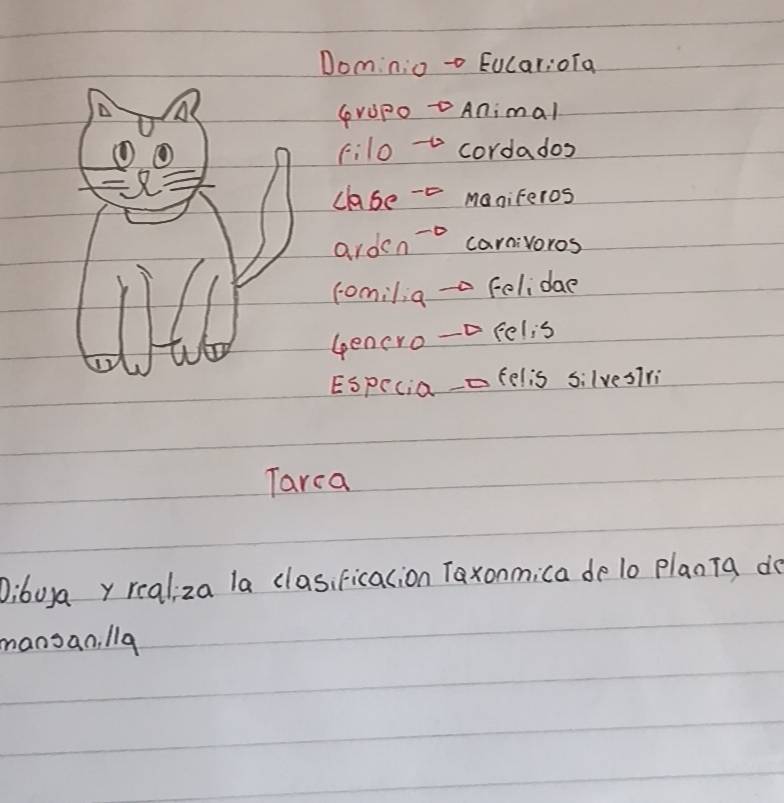 Dominio → Eucariota
Grupo → Animal
Filo → cordados
clase → maniferos
orden → carnivoros
Familia → Felidae
Genero → Felis
Especia → felis silvestri
Tarea
Dibuja y realiza la clasificacion Taxonmica de lo planta de
mansanilla